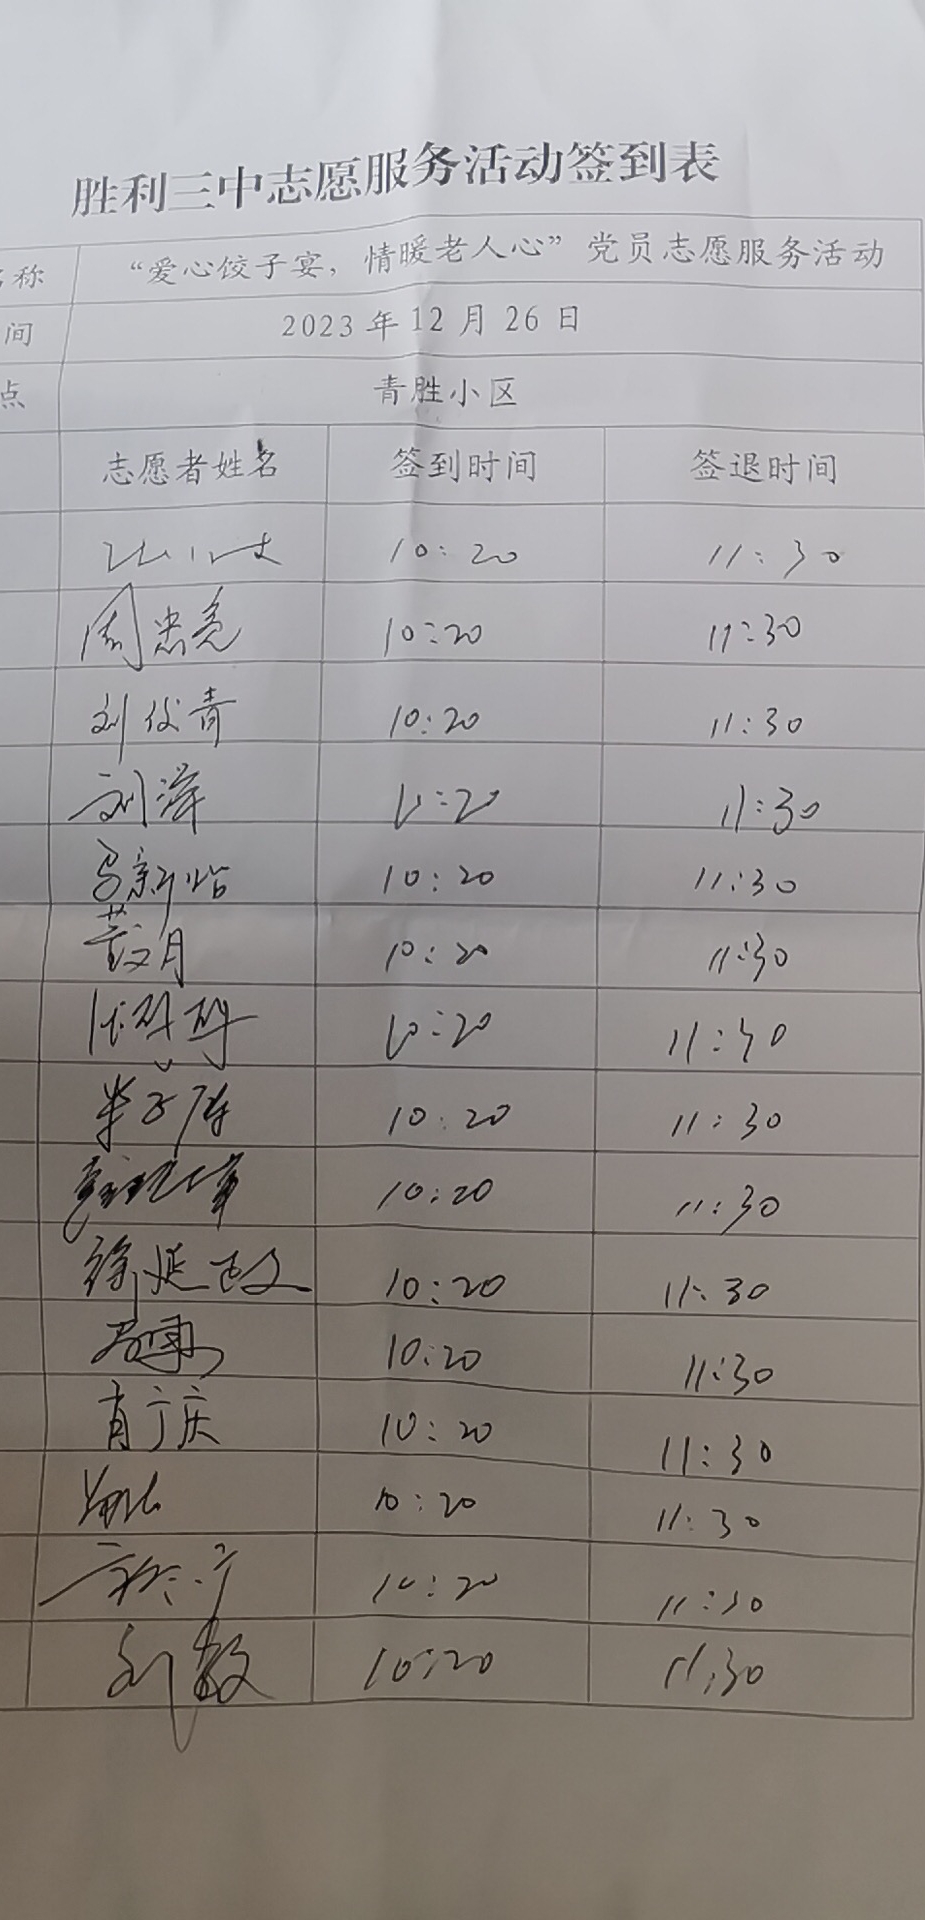 胜利三中志愿服务活动签到表
名称 “爱心饺子宴，情暖老人心”党员志愿服务活动
间 2023年12月26日
点 青胜小区
志愿者姓名 签到时间 签退时间
10:20 11:30
周忠亮 10:20 11:30
刘俊青 10:20 11:30
刘萍 10:20 11:30
马新怡 10:20 11:30
董文月 10:20 11:30
10:20 11:30
10:20 11:30
10:20 11:30
徐延政 10:20 11:30
10:20 11:30
肖广庆 10:20 11:30
10:20 11:30
10:20 11:30
刘毅 10:20 11:30